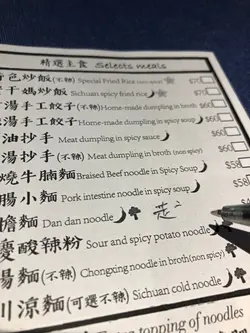 精選主食 Selects meals
色炒飯(不辣) Special Fried Rice $70
干媽炒飯 Sichuan spicy fried rice $70
湯手工餃子(不辣) Home-made dumpling in broth $60
湯手工餃子 Home-made dumpling in spicy soup $60
油抄手 Meat dumpling in spicy sauce $60
湯抄手(不辣) Meat dumpling in broth (non spicy) $60
燒牛腩麵 Braised Beef noodle in Spicy Soup $58
腸小麵 Pork intestine noodle in spicy soup $58
擔麵 Dan dan noodle
慶酸辣粉 Sour and spicy potato noodle
湯麵(不辣) Chongxing noodle in broth (non spicy)
川涼麵(可選不辣) Sichuan cold noodle
topping of noodles